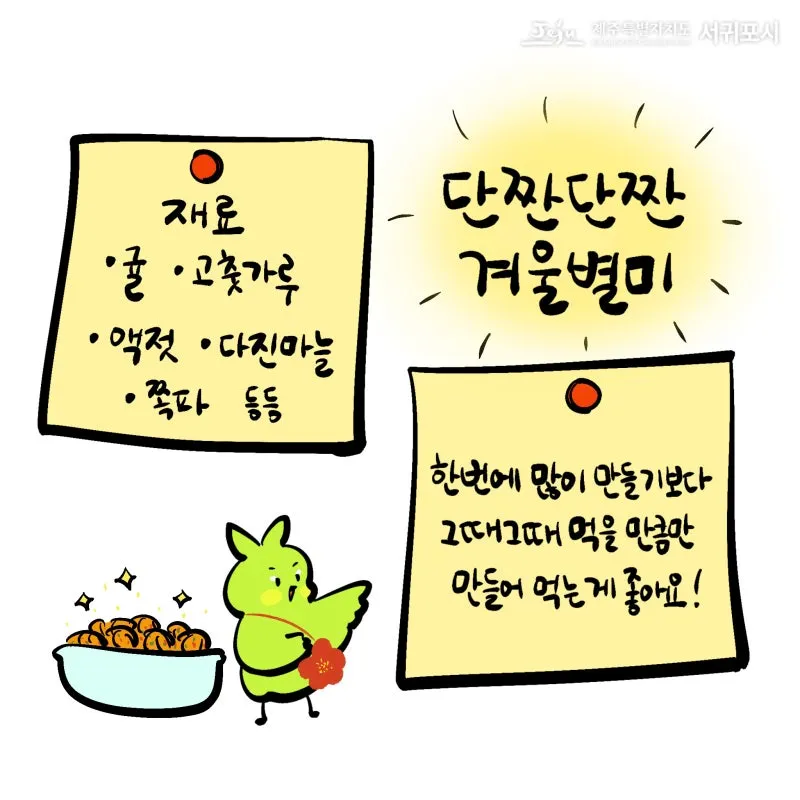 Jeju 제주특별자치도 서귀포시
단짠단짠
겨울별미
재료
·귤 ·고춧가루
·액젓 ·다진마늘
·쪽파 등등
한번에 많이 만들기보다
그때그때 먹을 만큼만
만들어 먹는게 좋아요!